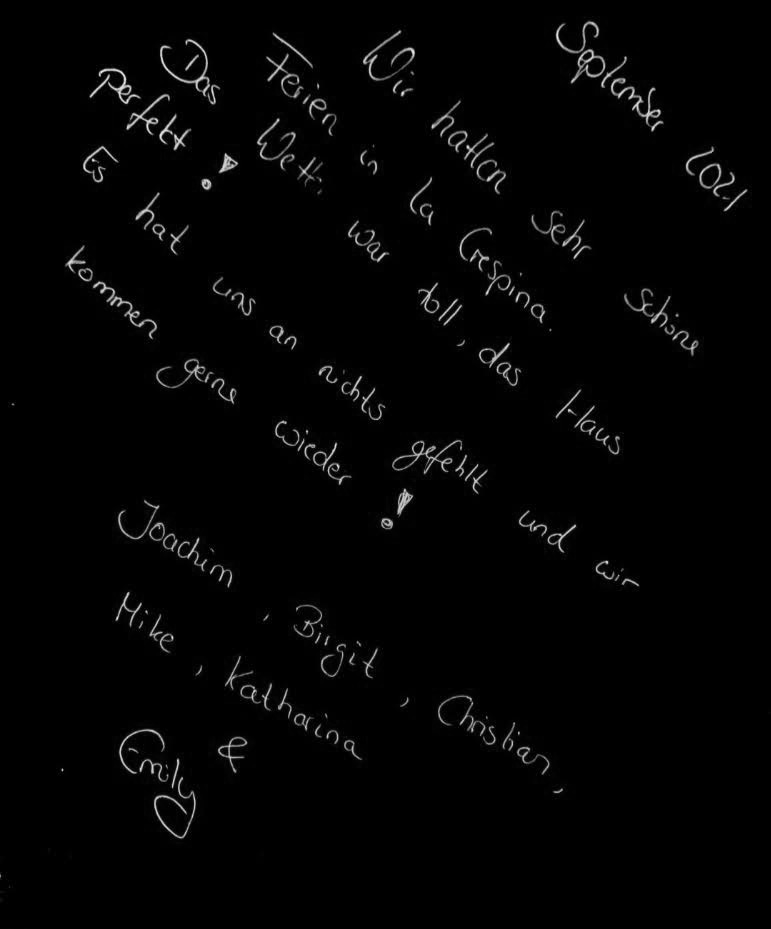 September 2021
Wir hatten sehr schöne
Ferien in La Crespina.
Das Wett. war toll, das Haus
perfekt!
Es hat uns an nichts gefehlt und wir
kommen gerne wieder!
Joachim, Birgit, Christian,
Mike, Katharina
&
Emily